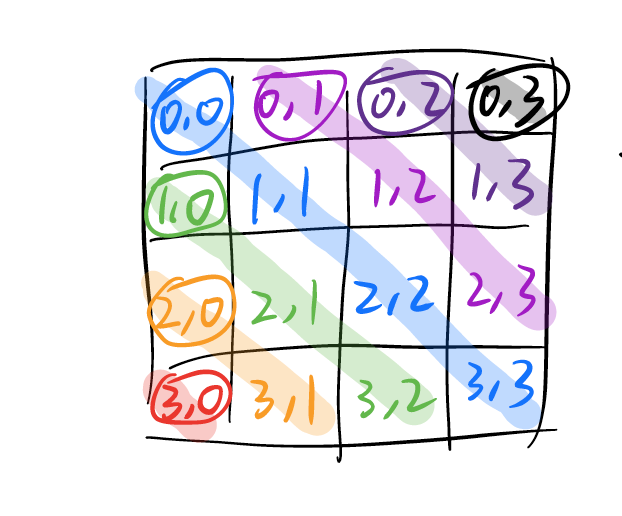 0,0 0,1 0,2 0,3
1,0 1,1 1,2 1,3
2,0 2,1 2,2 2,3
3,0 3,1 3,2 3,3